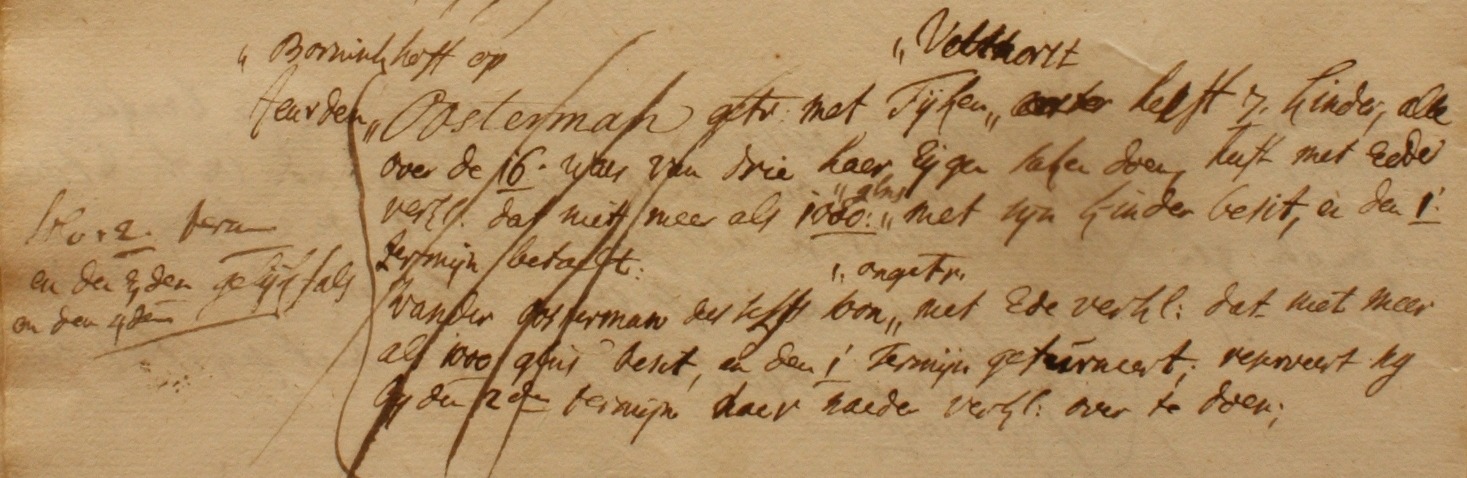 „ Borninkhoff op
„ Volthorst
„ Oosterman getr: met Fijken „ heft 7. kinder, alle
over de 16. waer van drie haer Eijgen doen, heft met Eede
verkl: dat niet meer als 1000: „ met syn kinder besit, en den 1:
„ glns
termijn betaelt:
„ ongetr.
Wander Oosterman des selfs soon „ met Ede verkl: dat niet meer
als 1000 glns besit, en den 1 termijn gefurneert, reserveert hy
by den 2 den termijn naeder verkl: over te doen;
2. term
en den 3 den gelijk als
en den 4 den